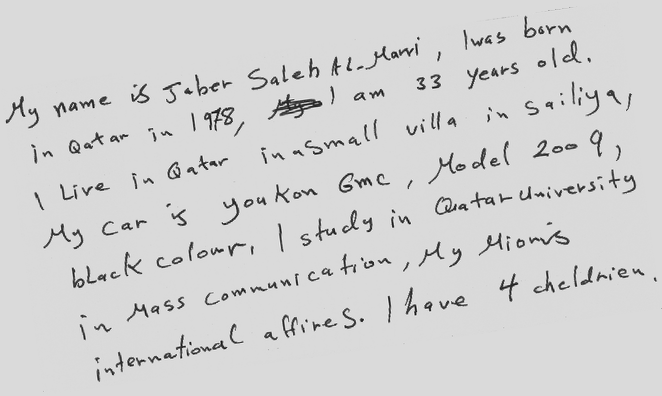 My name is Jaber Saleh Al-Marri, I was born
in Qatar in 1978, I am 33 years old.
I Live in Qatar in a small villa in Sailiya,
My Car is youkon Gmc, Model 2009,
black colour, I study in Qatar University
in Mass Communication, My Miomis
international affires. I have 4 cheldrien.